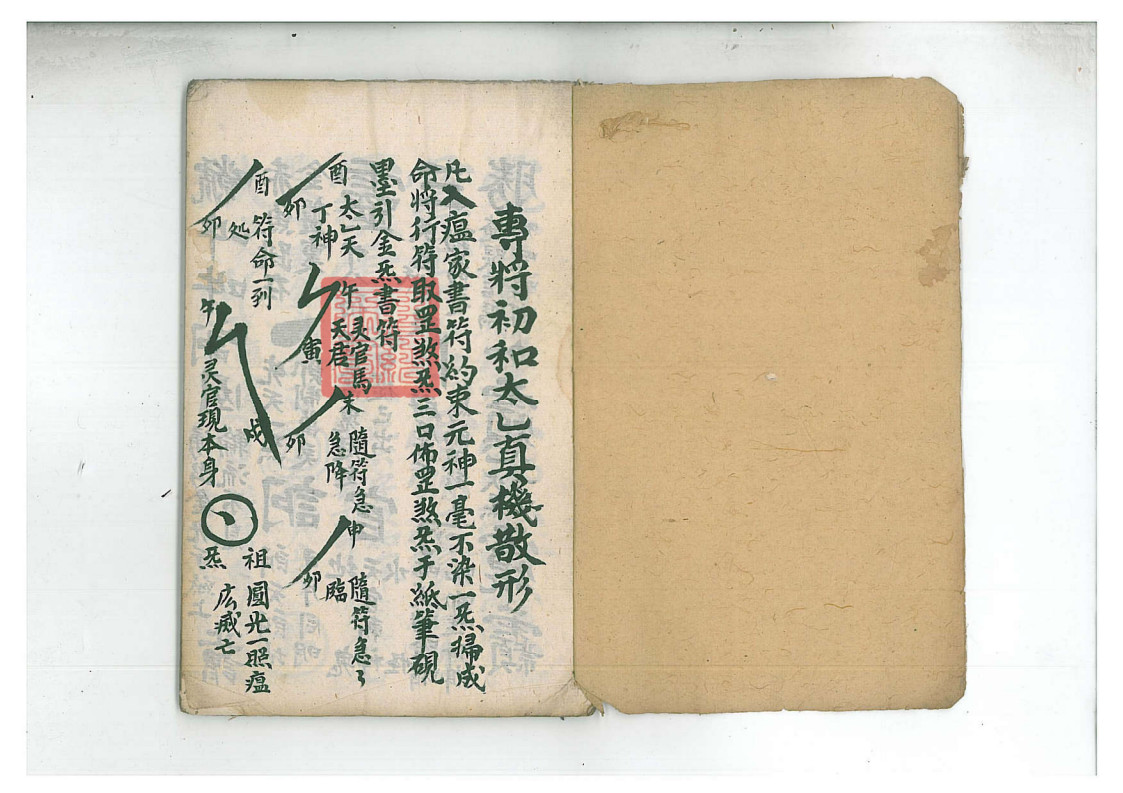 專將初和太乚真機散形
凡入瘟家書符約束元神一毫不染一炁掃成
命將行符取罡煞炁三口佈罡煞炁于紙筆硯
墨引金炁書符
酉 卯
太乚天丁神
午 寅
灵官馬天君
未 卯
隨符急急降
申 卯
隨符急々臨
酉 卯
符命一到处
午 戌
灵官現本身
祖炁
圓光一照瘟広滅亡